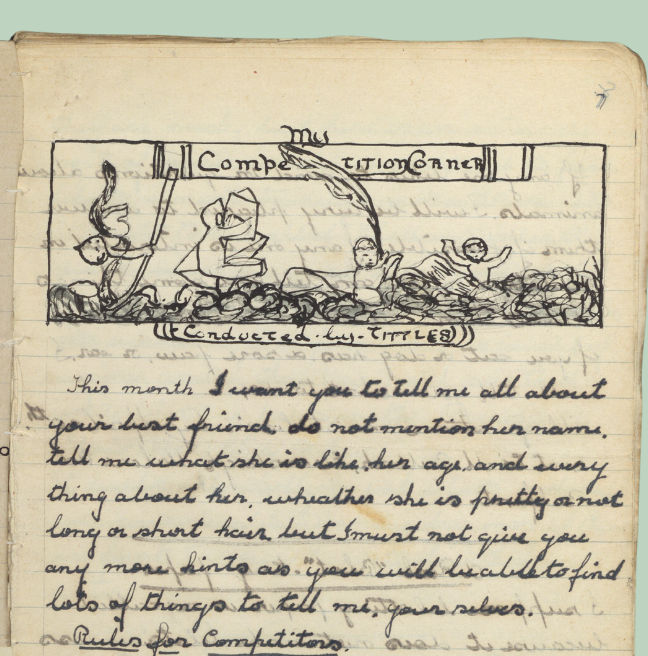 My
Competition Corner
Conducted-by-TITTLES
This month I want you to tell me all about
your best friend, do not mention her name.
tell me what she is like, her age, and every
thing about her, wheather she is pretty or not
long or short hair, but I must not give you
any more hints as you will be able to find
lots of things to tell me, your selves.
Rules for Competitors.